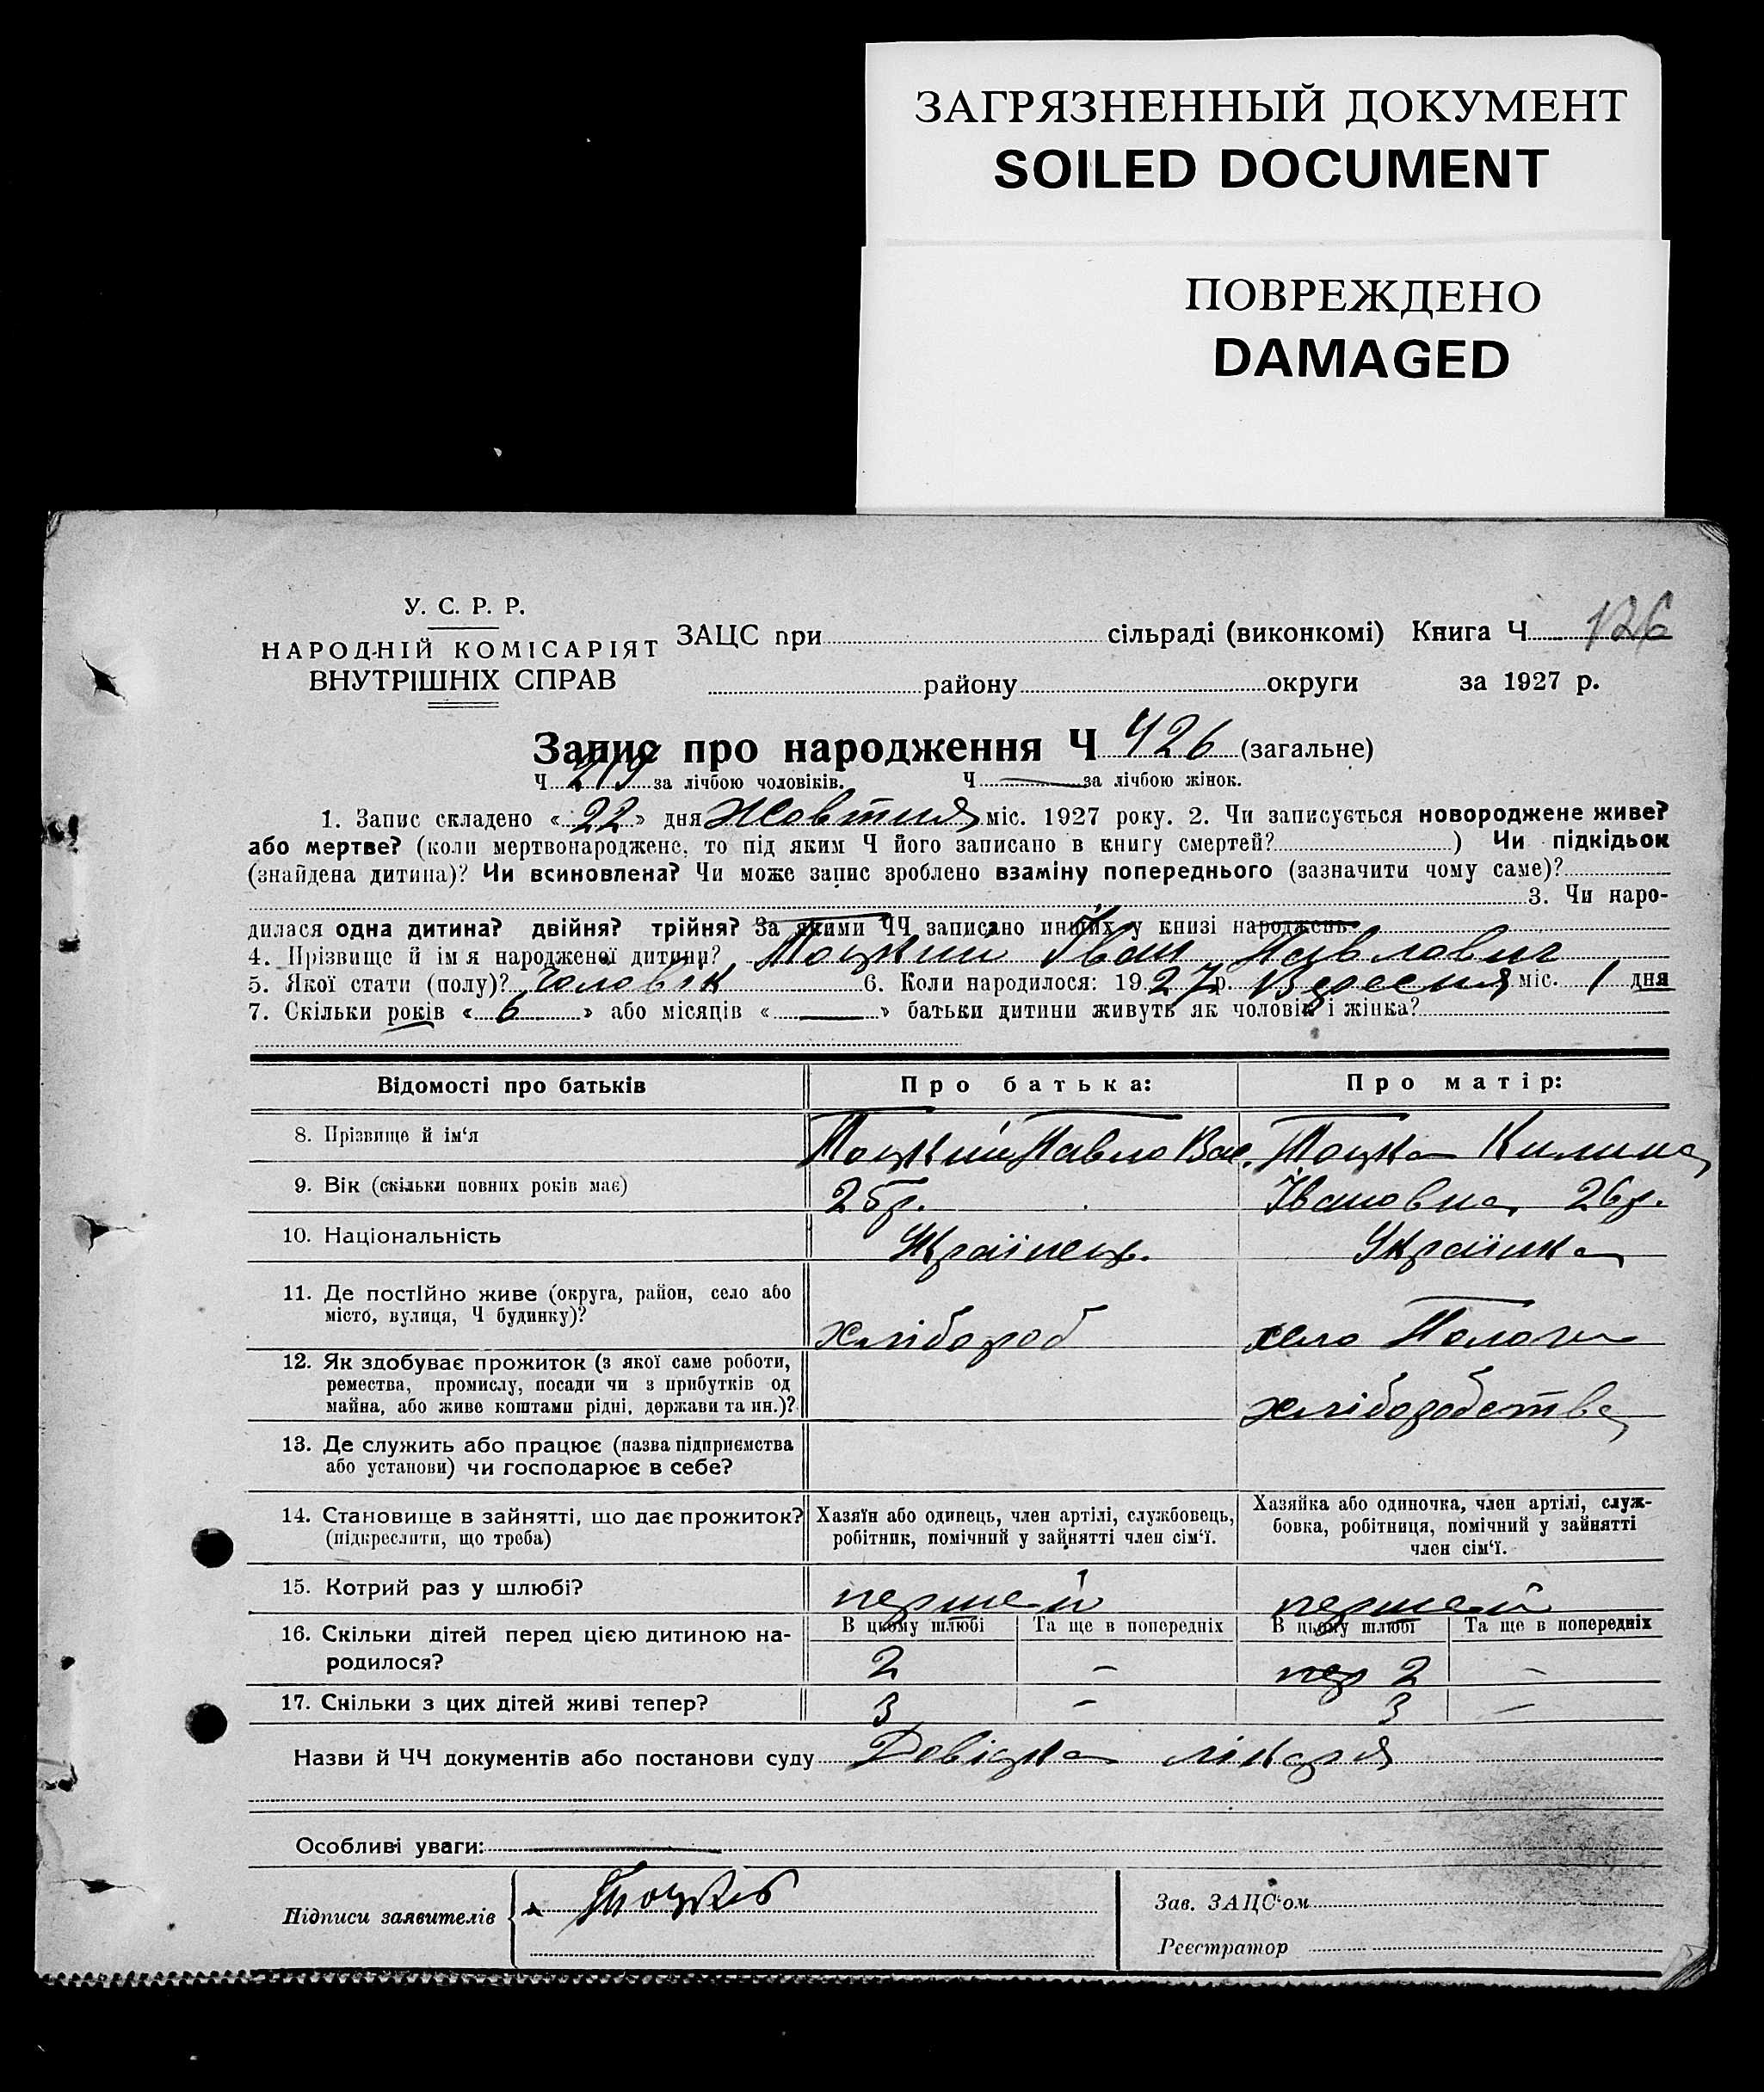 ЗАГРЯЗНЕННЫЙ ДОКУМЕНТ
SOILED DOCUMENT
ПОВРЕЖДЕНО
DAMAGED
У. С. Р. Р.
НАРОДНІЙ КОМІСАРІЯТ
ВНУТРІШНІХ СПРАВ
ЗАЦС при сільраді (виконкомі) Книга Ч 126
району округи за 1927 р.
Запис про народження Ч 426 (загальне)
Ч 219 за лічбою чоловіків. Ч — за лічбою жінок.
1. Запис складено « 22 » дня Жовтня міс. 1927 року. 2. Чи записується новороджене живе?
або мертве? (коли мертвонароджене, то під яким Ч його записано в книгу смертей? ) Чи підкідьок
(знайдена дитина)? Чи всиновлена? Чи може запис зроблено взаміну попереднього (зазначити чому саме)?
3. Чи наро-
дилася одна дитина? двійня? трійня? За якими ЧЧ записано инших у книзі народжень
4. Прізвище й ім'я народженої дитини? Тоцкий Іван Павлович
5. Якої стати (полу)? Чоловік 6. Коли народилося: 1927 р. Вересня міс. 1 дня
7. Скільки років « 6 » або місяців « — » батьки дитини живуть як чоловік і жінка?
Відомості про батьків Про батька: Про матір:
8. Прізвище й ім'я Тоцкий Павло Вас. Тоцка Килина
9. Вік (скільки повних років має) 25 р. Івановна, 26 р.
10. Національність Українець. Українка
11. Де постійно живе (округа, район, село або
місто, вулиця, Ч будинку)? хлібороб село Пологи
12. Як здобуває прожиток (з якої саме роботи,
ремества, промислу, посади чи з прибутків од
майна, або живе коштами рідні, держави та ин.)? хліборобства
13. Де служить або працює (назва підприємства
або установи) чи господарює в себе?
14. Становище в зайнятті, що дає прожиток?
(підкреслити, що треба)
Хазяїн або одинець, член артілі, службовець,
робітник, помічний у зайнятті член сім'ї.
Хазяйка або одиночка, член артілі, служ-
бовка, робітниця, помічний у зайнятті
член сім'ї.
15. Котрий раз у шлюбі? перший перший
В цьому шлюбі Та ще в попередніх В цьому шлюбі Та ще в попередніх
16. Скільки дітей перед цією дитиною на-
родилося? 2 – пер 2 –
17. Скільки з цих дітей живі тепер? 3 – 3 –
Назви й ЧЧ документів або постанови суду Довідка лікаря
Особливі уваги: —
Підписи заявителів
Зав. ЗАЦС'ом
Реєстратор